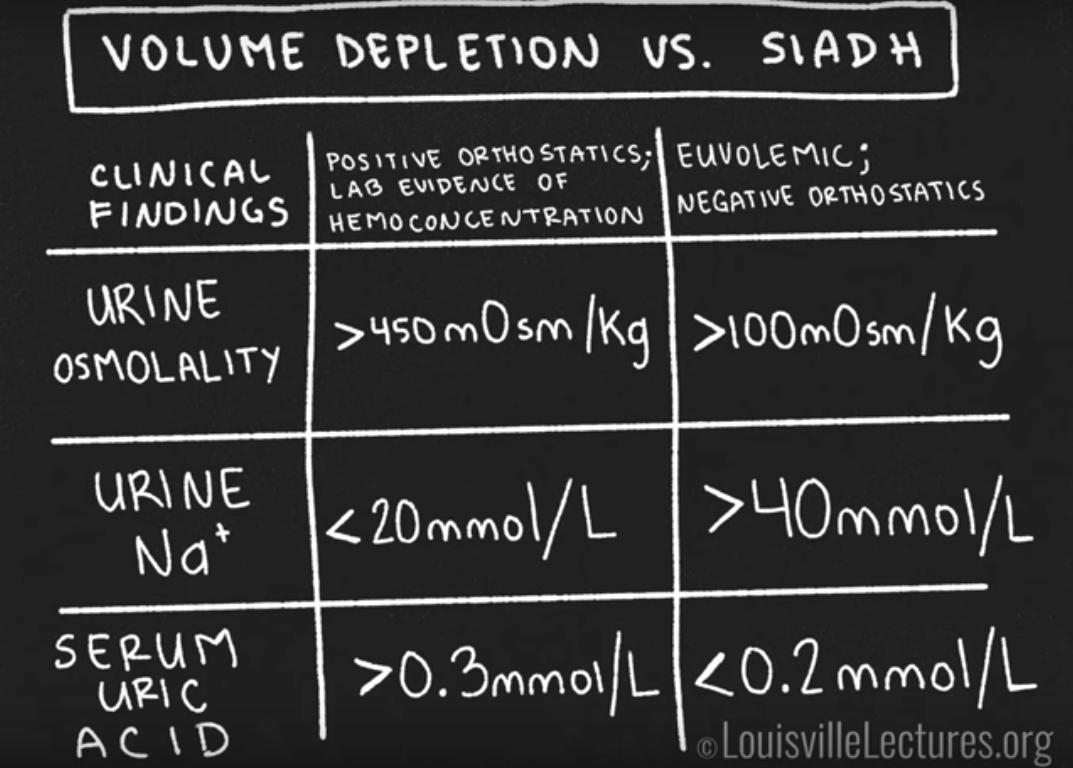 VOLUME DEPLETION VS. SIADH
CLINICAL
FINDINGS
POSITIVE ORTHOSTATICS;
LAB EVIDENCE OF
HEMOCONCENTRATION
EUVOLEMIC;
NEGATIVE ORTHOSTATICS
URINE
OSMOLALITY
>450mOsm/Kg
>100mOsm/Kg
URINE
Na⁺
<20mmol/L
>40mmol/L
SERUM
URIC
ACID
>0.3mmol/L
<0.2mmol/L
©LouisvilleLectures.org